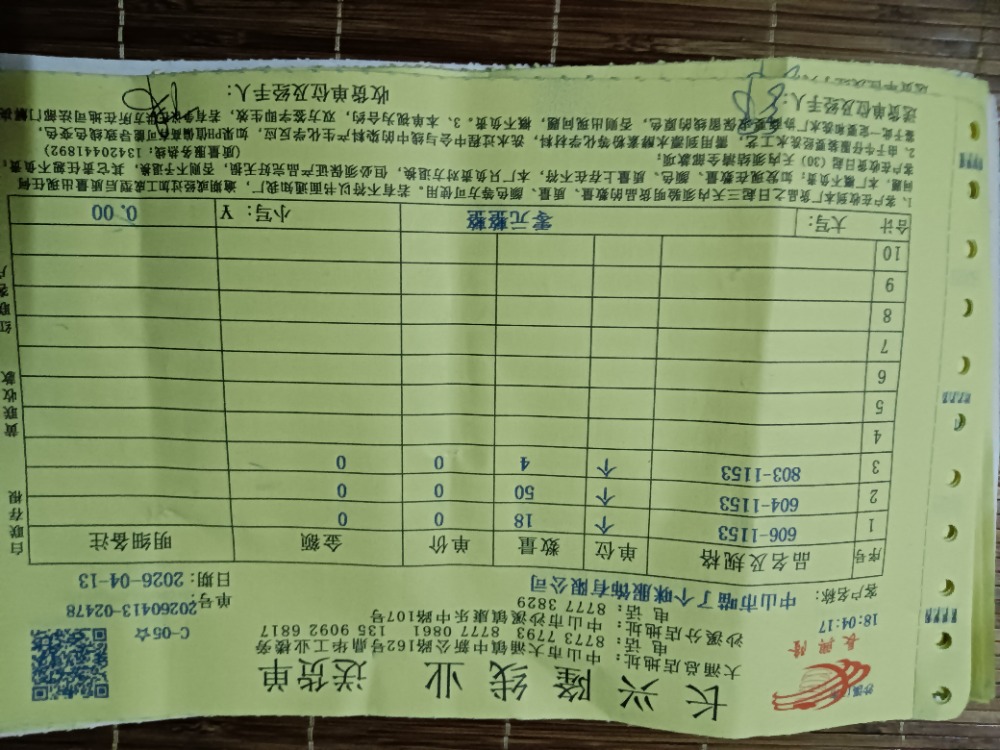 长兴隆线业 送货单
沙溪
长兴隆
大涌总店地址：中山市大涌镇中新中路公路162号鼎华工业楼旁
电话：8773 7793 8777 0861 135 9092 6817
沙溪分店地址：中山市沙溪镇康乐中路107号
电话：8777 3829
18:04:17
C-05☆
单号：20260413-02478
客户名称：中山市喵了个咪服饰有限公司
日期：2026-04-13
序号 品名及规格 单位 数量 单价 金额 明细备注
1 606-1153 个 18 0 0
2 604-1153 个 50 0 0
3 803-1153 个 4 0 0
4
5
6
7
8
9
10
合计 大写： 零元整整 小写：¥ 0.00
1、客户在收到本厂货品之日起三天内须验明货品的数量、质量、颜色等方可使用，若有不符以书面通知我厂，逾期或经过加工成型后质量出现任何
问题，本厂概不负责；如发现在数量、颜色、质量上存在不符，本厂只负责对方退换，但必须保证产品完好无损，否则不予退换，其它责任恕不负责；
客户在收货日起（30）天内须结清全部款项； （质量服务热线：13420441892）
2、由于牛仔服装要经洗水工艺，需用到漂水酵素粉等化学材料，洗水过程中会与线中的染料产生化学反应，如果PH值偏高有可能导致线色变色，
概不负责。3、本单视为合约，双方签字即生效，若有争议
送货单位及经手人：
收货单位及经手人：
白联存根
黄联收款
红联客户